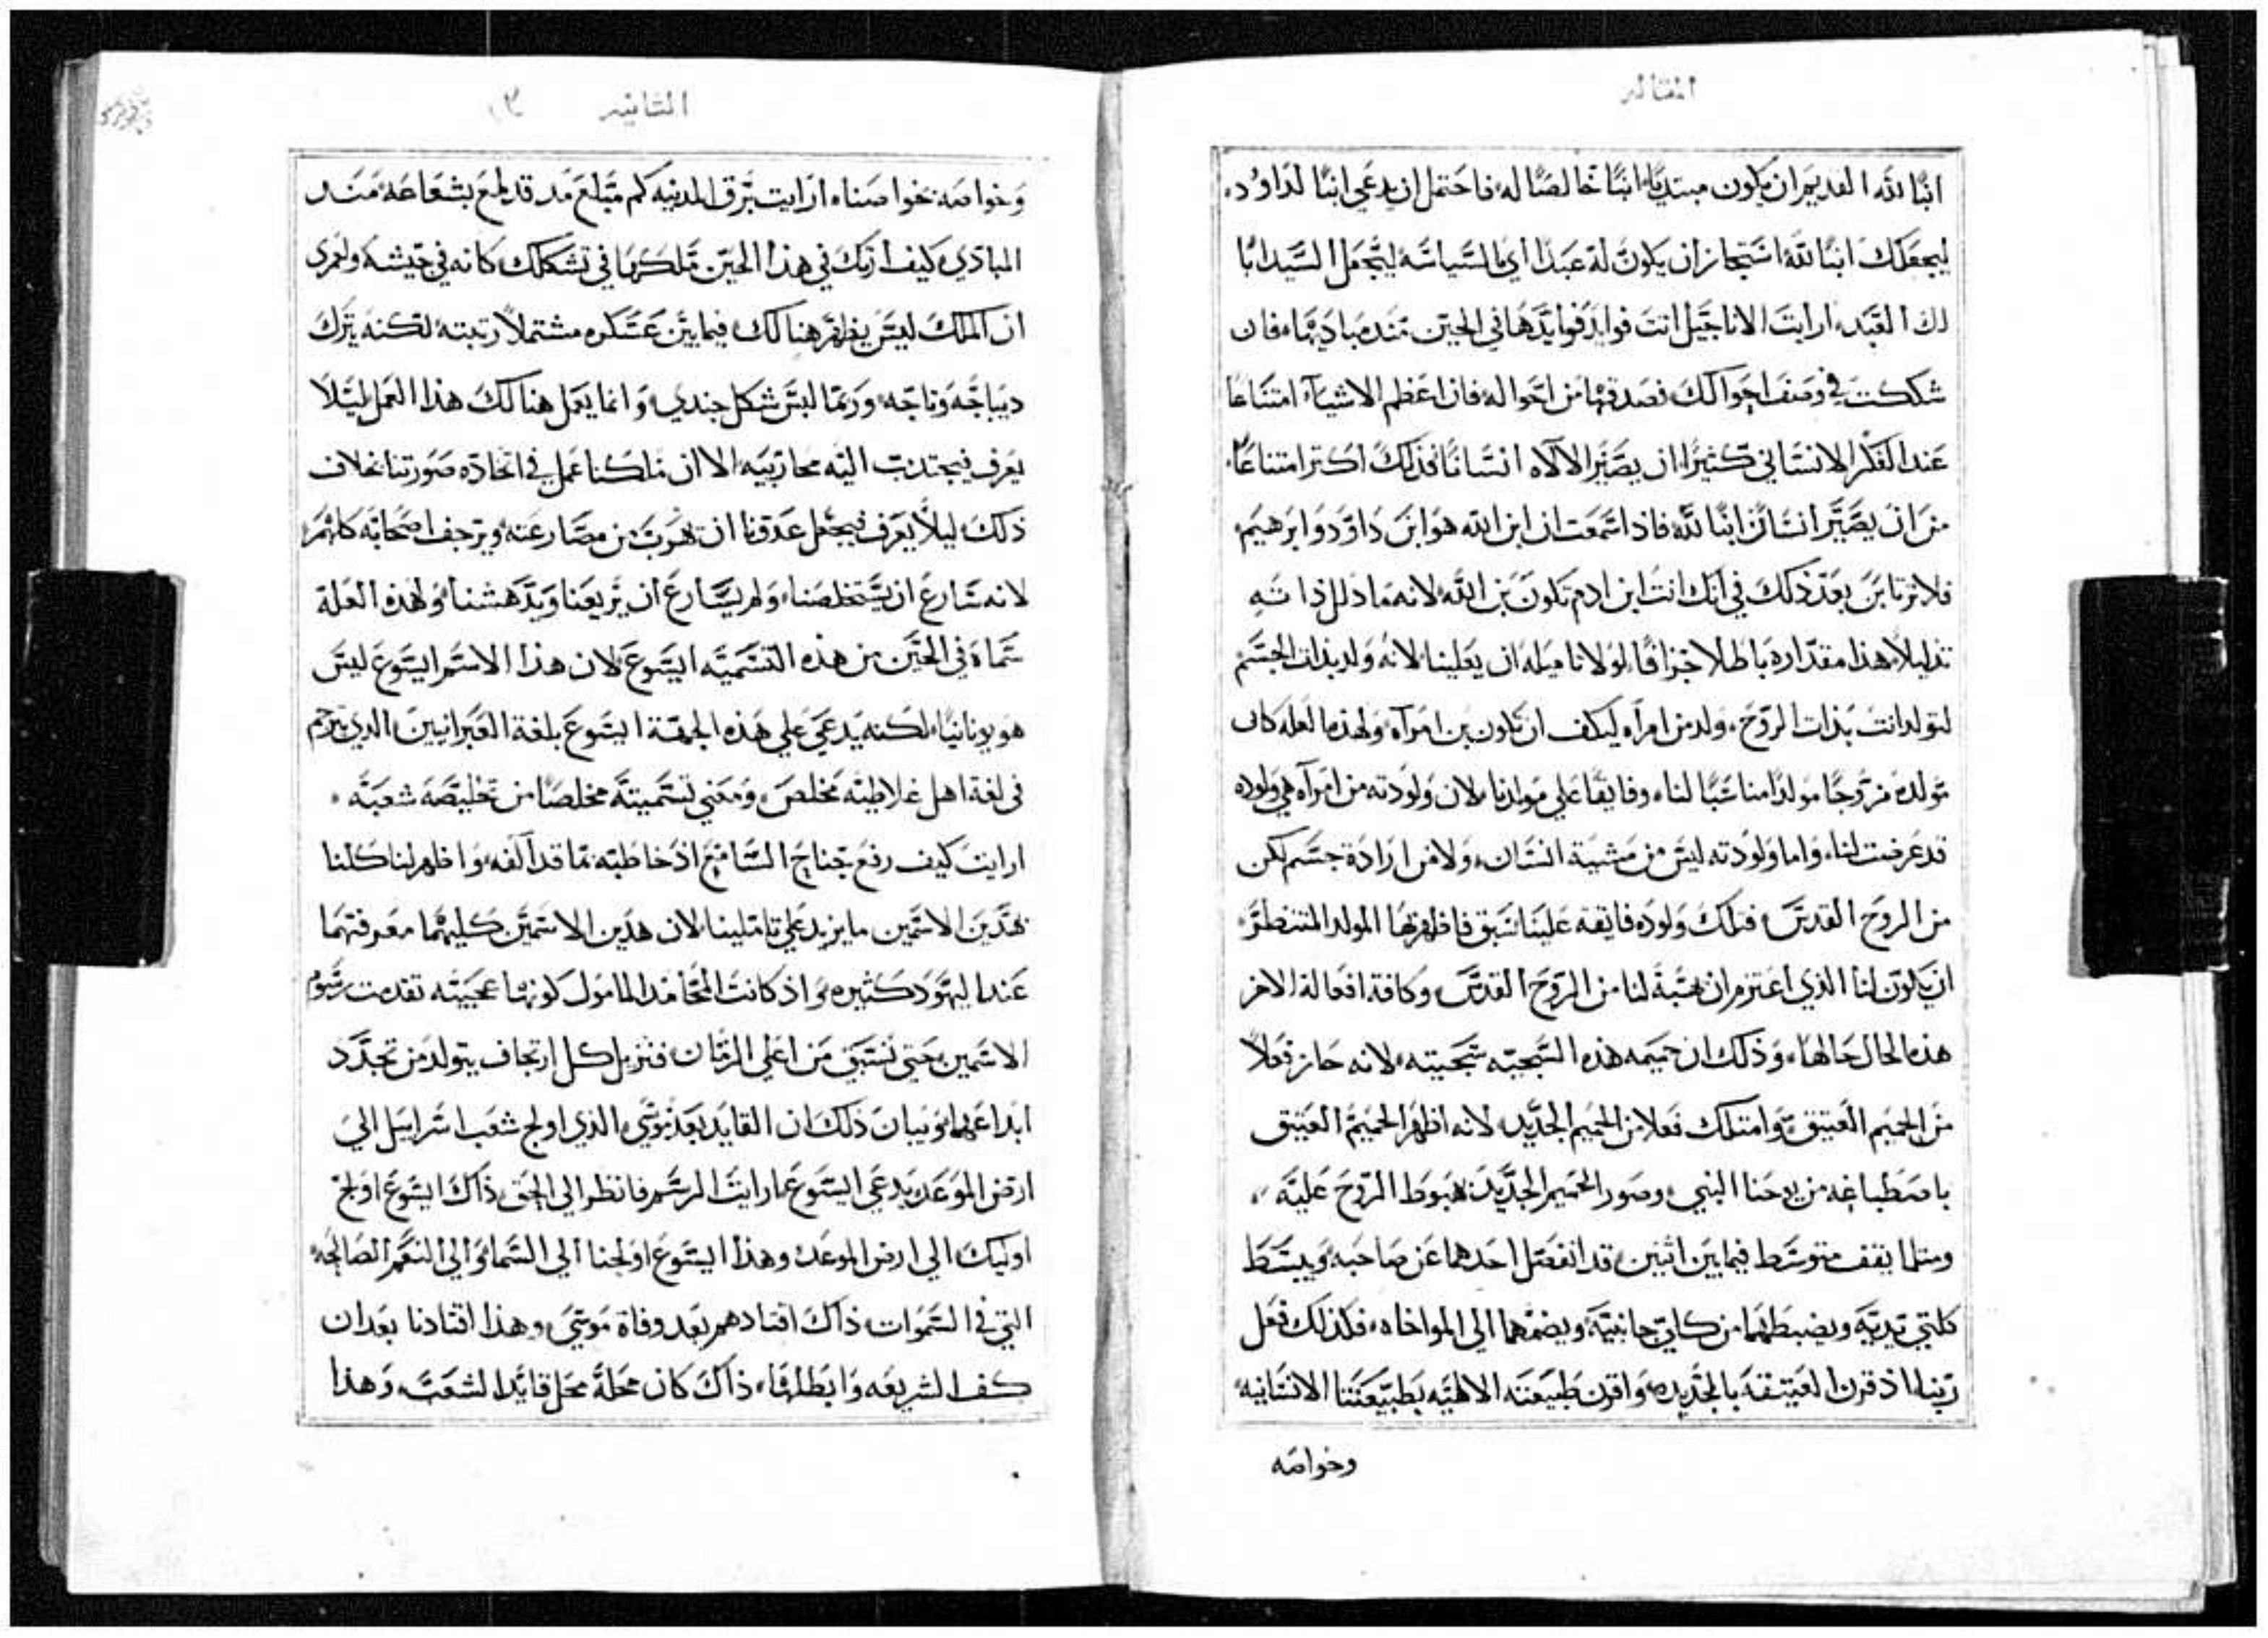 المقاله
ابنًا لله القديم ان يكون مبتديًا ابنًا خالصًا له فاحتمل ان يدعي ابنًا لداوُد
ليجعلك ابنًا لله استجاز ان يكون له عبدًا اي لسياسه ليجعل السيد ابًا
لك العبد ارايت الاناجيل انت فوايد فوايدها في الحين منذ مباديها فان
شككت في وصف احوالك فصدقها من احواله فان اعظم الاشيآء امتناعًا
عند الفكر الانساني كثيرًا ان يصير الالاه انسانًا فذلك اكتر امتناعًا
من ان يصير انسان ابنًا لله فاذا سمعت ان ابن الله هو ابن داوود وابرهيم
فلا ترتابن بعد ذلك في انك انت ابن ادم تكون بن الله لانه ما ذلل ذاته
تذليلاً هذا مقداره باطلا جزافًا لولا ناميله ان يعلينا لانه ولد بذات الجسم
لتولد انت بذات الروح ولد من امراه ليكف ان تكون بن امرآه ولهذه العله كان
مولده مزدوجًا مولدًا مناسبًا لنا وفايقًا علي مولدنا لان ولودته من امرآه هي ولوده
قد عرضت لنا واما ولودته ليس من مشيية انسان ولا من ارادة جسم لكن
من الروح القدس فتلك ولوده فايقه علينا سبق فاظهر بها المولد المنتظر
ان يكون لنا الذي اعتزم ان يهبه لنا من الروح القدس وكافة افعاله الاخر
هذه الحال حالها وذلك ان حميمه هذه السجيه سجيته لانه حاز فعلاً
من الحميم العتيق وامتلك فعلا من الحميم الجديد لانه اظهر الحميم العتيق
باصطباغه من يوحنا النبي وصور الحميم الجديد بهبوط الروح عليه
ومتلما يقف متوسط فيما بين اتنين قد انفصل احدهما عن صاحبه ويبسط
كلتي يديه ويضبطهما من كلي جانبيه ويضمهما الي المواخاه فكذلك فعل
ربنا اذ قرن العتيقه بالجديده واقرن طبيعته الالاهيه بطبيعتنا الانسانيه
وخواصه
التانيه
وخواصه بخواصنا ارايت برق المدينه كم مبلغ مد قد لمع بشعاعه منذ
المبادي كيف اراك في هذا الحين ملكها في تشكلك كانه في جيشه ولعمري
ان الملك ليس يظهر هنالك فيما بين عسكره مشتملاً رتبته لكنه يترك
ديباجه وتاجه وربما لبس شكل جندي وانما يعمل هنالك هذا العمل ليلا
يعرف فيجتذب اليه محاربيه الا ان ملكنا عمل في اتخاده صورتنا بخلاف
ذلك ليلاً يعرف فيجعل عدونا ان هرب من مصارعته ويرجف اصحابه كلهم
لانه سارع ان يستخلصنا ولم يسارع ان يريعنا ويدهشنا ولهذه العلة
سماه في الحين من هذه التسميه ايسوع لان هذا الاسم ايسوع ليس
هو يونانيًا لكنه يدعي علي هذه الجهة ايسوع بلغة العبرانيين الدي يترجم
في لغة اهل غلاطيه مخلص ومعني تسميته مخلصًا من تخليصه شعبه
ارايت كيف رفع جناح السامع اذ خاطبه بما قد آلفه واظهر لنا كلنا
بهذين الاسمين ما يزيد علي تاميلينا لان هذين الاسمين كليهما معرفتهما
عند اليهود كثيره واذ كانت المحامد المامول كونها عجيبه تقدمت رسوم
الاسمين حتي تستبق من اعلي الزمان فتزيل كل ارتجاف يتولد من تجدد
ابداعهما وبيان ذلك ان القايد بعد موسي الذي اولج شعب اسراييل الي
ارض الموعد يدعي ايسوع ارايت الرسم فانظر الي الحق ذاك ايسوع اولج
اوليك الي ارض الموعد وهذا ايسوع اولجنا الي السما والي النعم الصالحه
التي في السموات ذاك اقتادهم بعد وفاة موسي وهذا اقتادنا بعد ان
كف الشريعه وابطلها ذاك كان محلة محل قايد الشعب وهذا